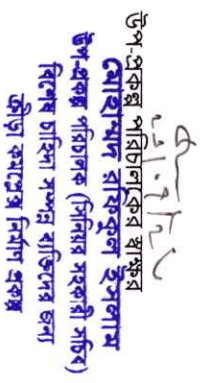 উপ-প্রকল্প পরিচালকের স্বাক্ষর
মোহাম্মদ রফিকুল ইসলাম
উপ-প্রকল্প পরিচালক (সিনিয়র সহকারী সচিব)
বিশেষ চাহিদা সম্পন্ন ব্যক্তিদের জন্য
ক্রীড়া কমপ্লেক্স নির্মাণ প্রকল্প